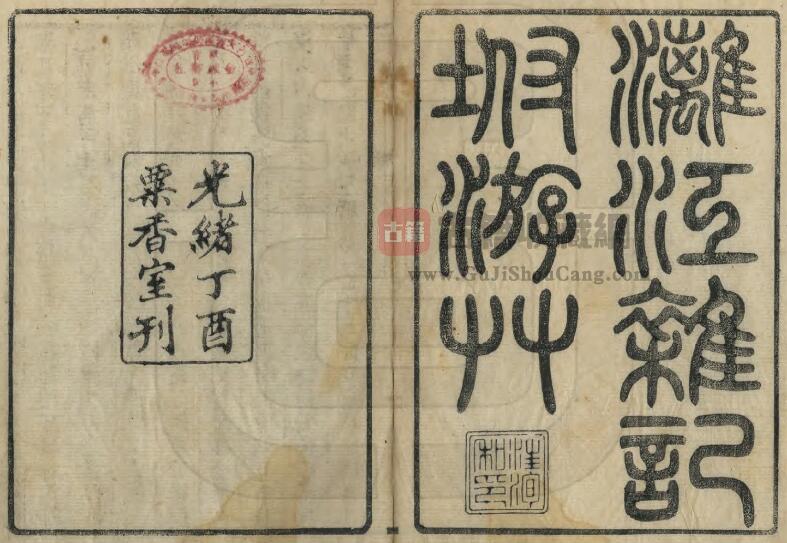 灕江雜記
坿游艸
光緒丁酉
粟香室刊
古籍
www.GuJiShouCang.com